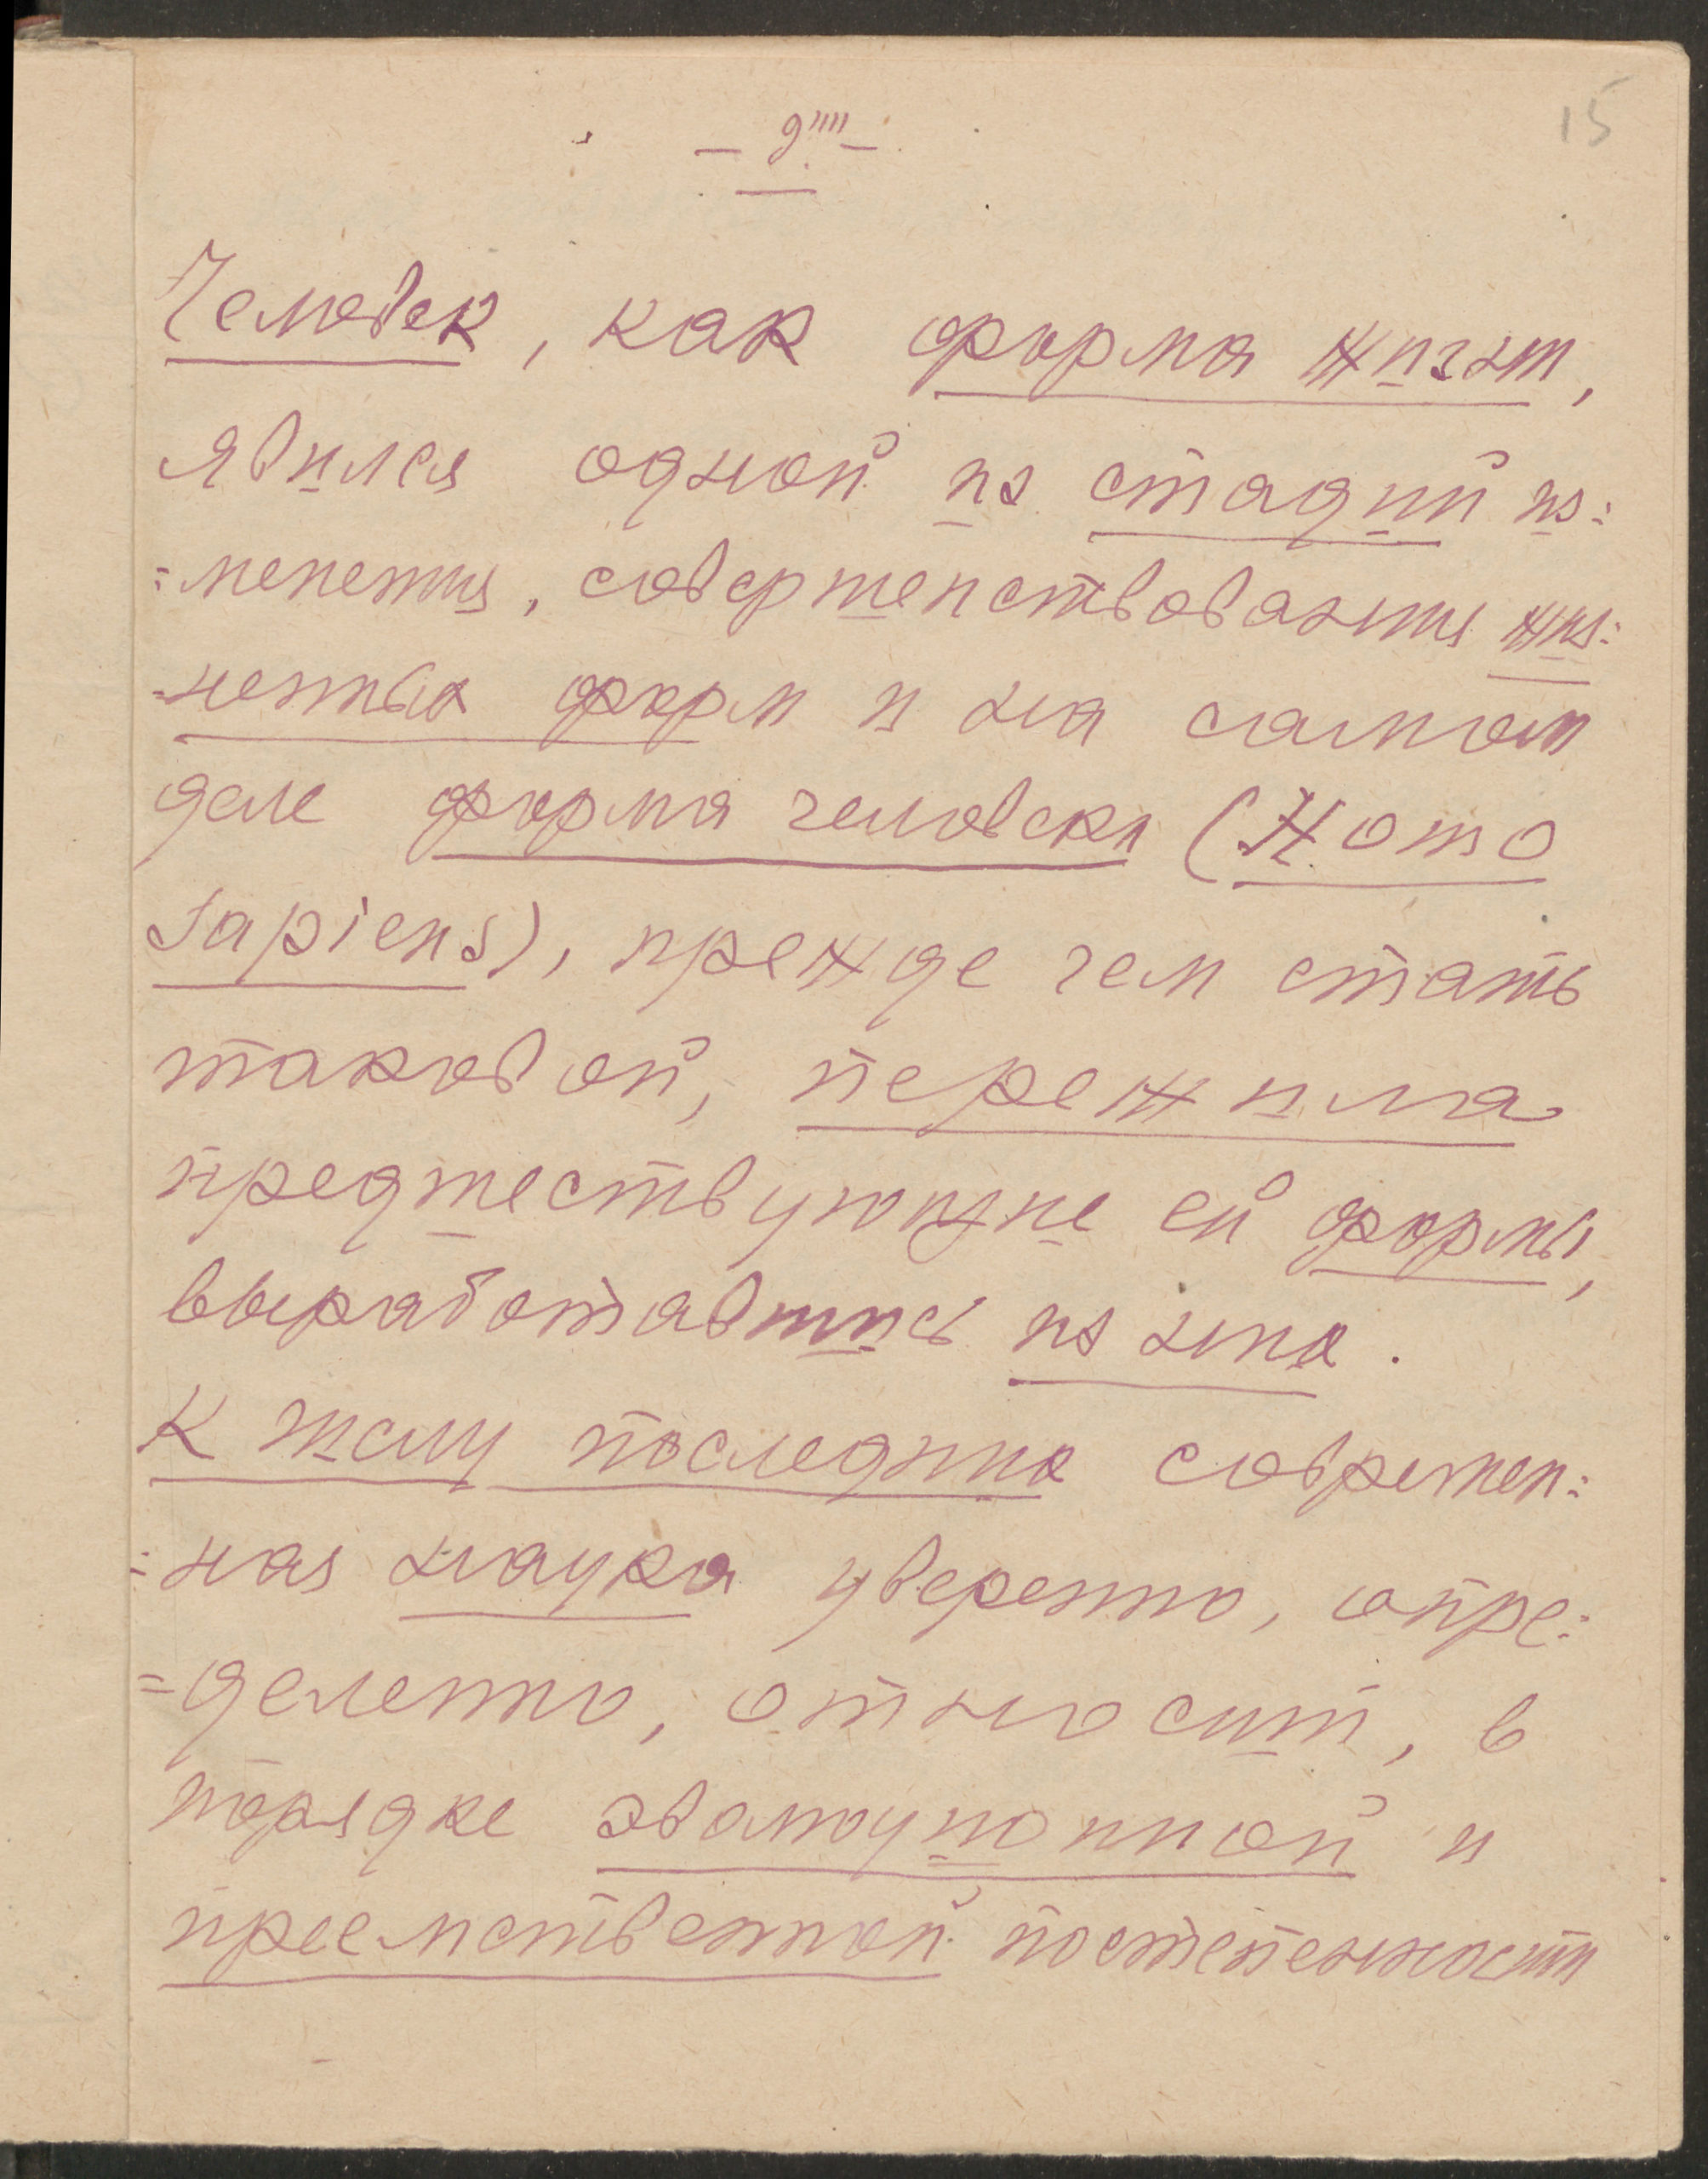 15
— 9'''' —
Человек, как форма жизни,
явился одной из стадий из:
=менения, совершенствования жиз:
=ненных форм и на самом
деле форма человека (Homo
Sapiens), прежде чем стать
таковой, пережила
предшествующие ей формы,
выработавшись из них.
К числу последних современ:
=ная наука уверенно, опре:
=деленно, относит, в
порядке эволюционной и
преемственной постепенности